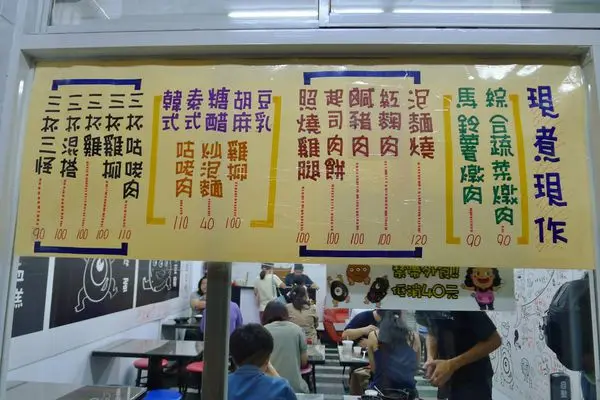 現煮現作
綜合蔬菜燉肉 90
馬鈴薯燉肉 90
泡麵燒 120
紅麴肉 100
鹹豬肉 100
起司肉餅 100
照燒雞腿 100
豆乳
胡麻
糖醋
泰式
韓式
雞柳 100
炒泡麵 40
咕咾肉 110
三杯咕咾肉 110
三杯雞柳 100
三杯雞 100
三杯混搭 100
三杯三怪 90
禁帶外食!!
低消40元